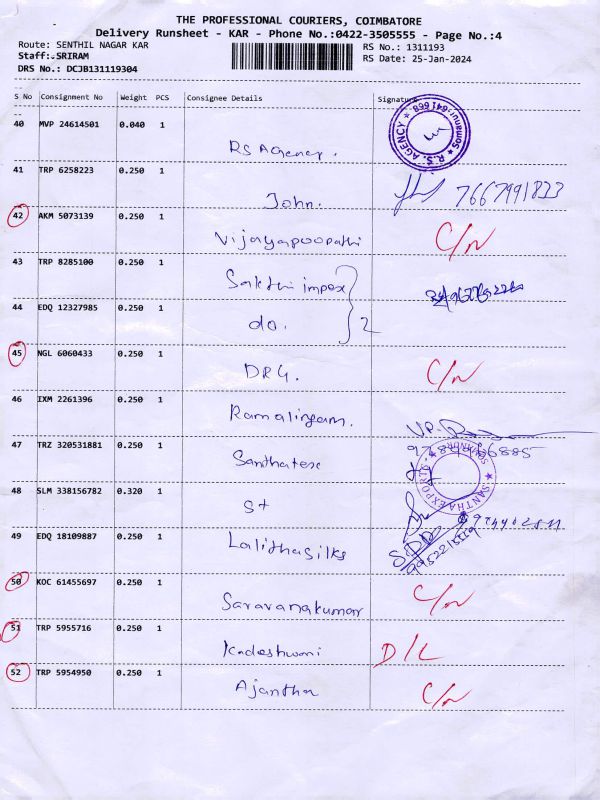 THE PROFESSIONAL COURIERS, COIMBATORE
Delivery Runsheet - KAR - Phone No.:0422-3505555 - Page No.:4
Route: SENTHIL NAGAR KAR RS No.: 1311193
Staff:-SRIRAM RS Date: 25-Jan-2024
DRS No.: DCJB131119304
S No Consignment No Weight PCS Consignee Details Signature
40 MVP 24614501 0.040 1 RS Agency. R.S. AGENCY
41 TRP 6258223 0.250 1 John. 7667991833
42 AKM 5073139 0.250 1 Vijayapoopathi C/N
43 TRP 8285100 0.250 1 Sakthi impex
44 EDQ 12327985 0.250 1 do. 2
45 NGL 6060433 0.250 1 DRG. C/N
46 IXM 2261396 0.250 1 Ramalingam.
47 TRZ 320531881 0.250 1 Santhatex SANTHA EXPORTS
48 SLM 338156782 0.320 1 St
49 EDQ 18109887 0.250 1 Lalithasilks
50 KOC 61455697 0.250 1 Saravanakumar C/N
51 TRP 5955716 0.250 1 D/L
52 TRP 5954950 0.250 1 Ajantha C/N